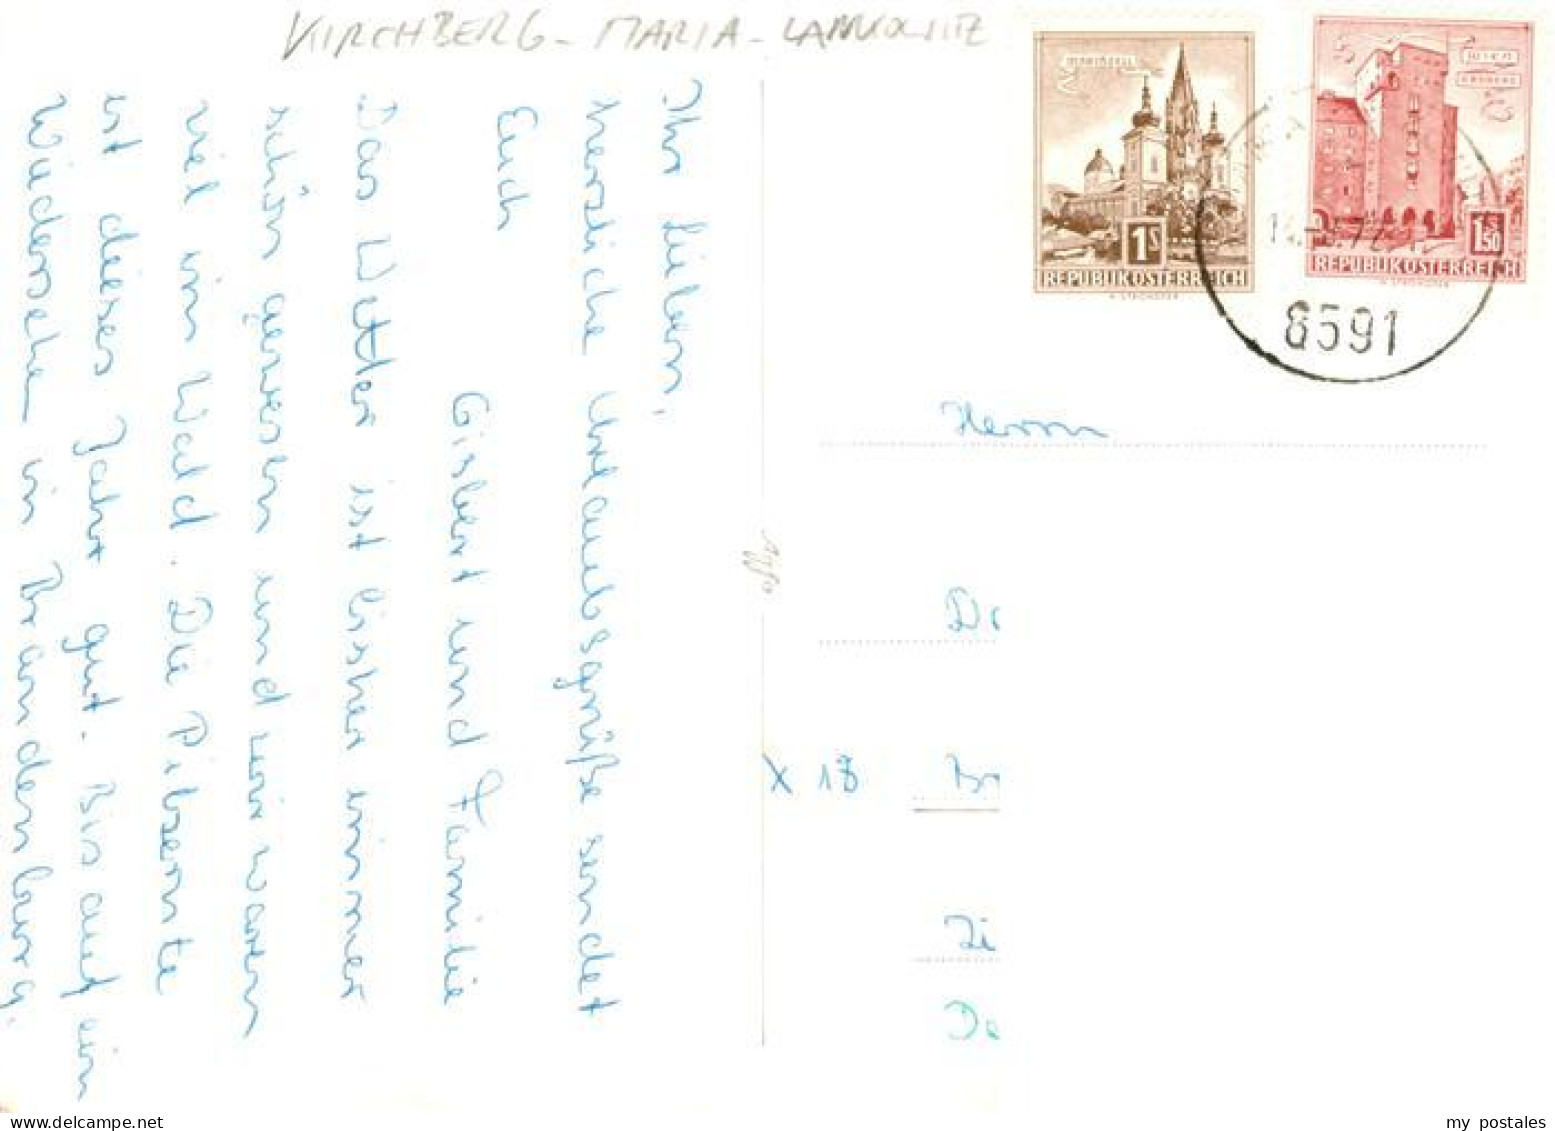 KIRCHBERG - MARIA - LANKOWITZ
Ihr Lieben,
herzliche Urlaubsgrüße sendet
Euch
Gisbert und Familie
Das Wetter ist bisher immer
schön gewesen und wir waren
viel im Wald. Die Pilzernte
ist dieses Jahr gut. Bis auf ein
Wiedersehen in Brandenburg.
MARIAZELL
1S
REPUBLIK ÖSTERREICH
WIEN
ERDBERG
1.50
S
REPUBLIK ÖSTERREICH
8591
Herrn
Dr
X 18 Br
Zi
De
my postales